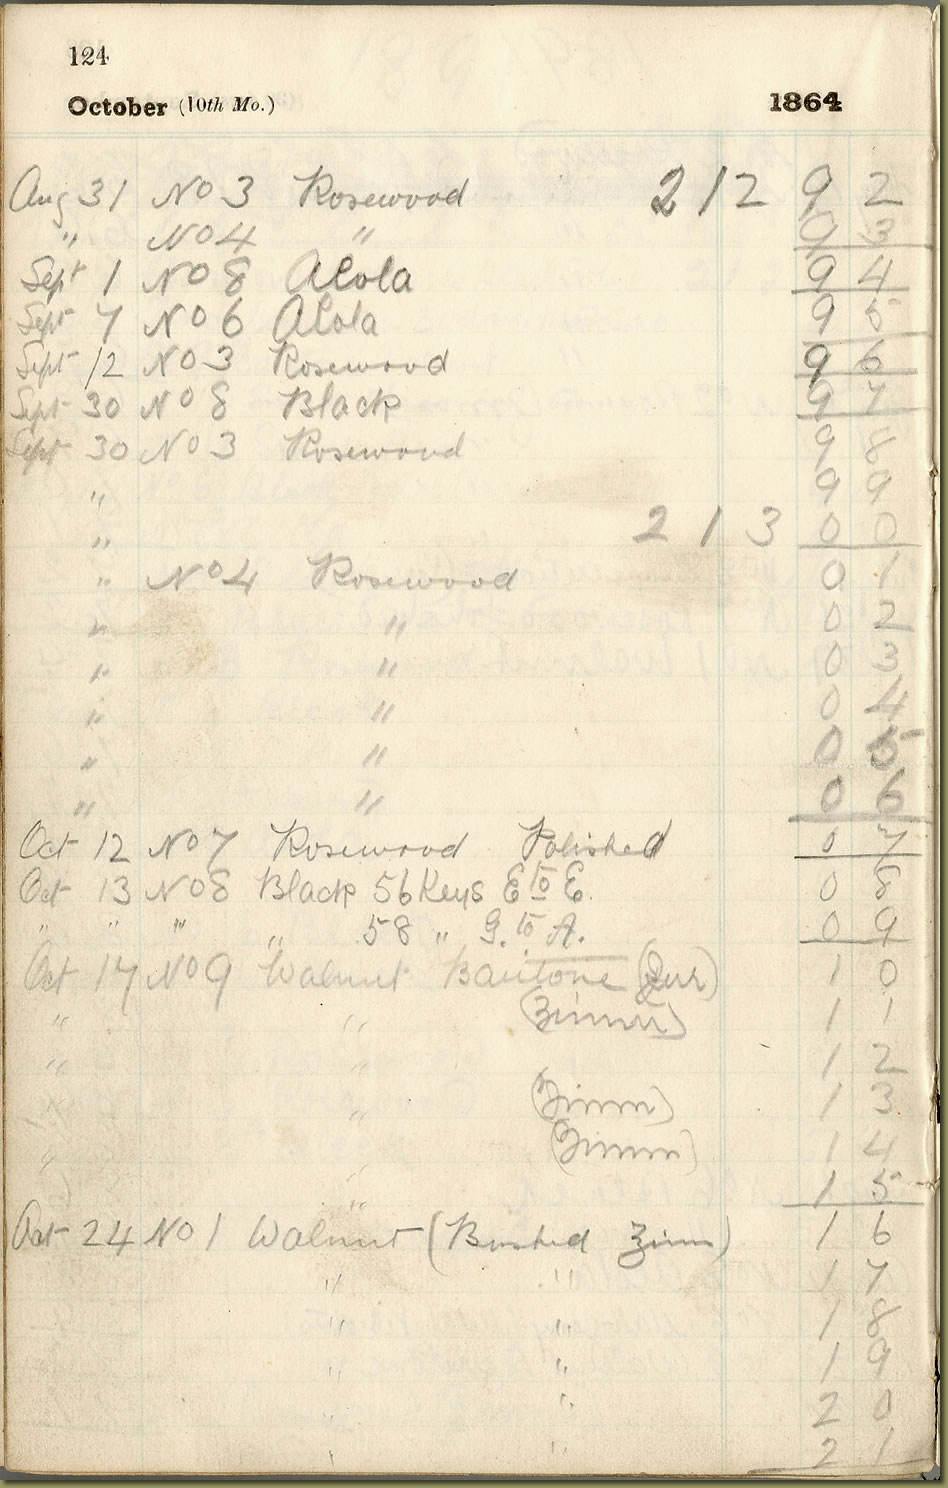 124
October (10th Mo.) 1864
Aug 31 No 3 Rosewood 212 9 2
" No 4 " 9 3
Sept 1 No 8 Alola 9 4
Sept 7 No 6 Alola 9 5
Sept 12 No 3 Rosewood 9 6
Sept 30 No 8 Black 9 7
Sept 30 No 3 Rosewood 9 8
" 9 9
" 2 1 3 0 0
" No 4 Rosewood 0 1
" " 0 2
" " 0 3
" " 0 4
" " 0 5
" " 0 6
Oct 12 No 7 Rosewood Polished 0 7
Oct 13 No 8 Black 56 Keys E to E. 0 8
" " " " 58 " G. to A. 0 9
Oct 17 No 9 Walnut Baritone 1 0
" " (Zimm) 1 1
" " 1 2
" (Zimm) 1 3
" (Zimm) 1 4
" 1 5
Oct 24 No 1 Walnut (Bushed Zimm) 1 6
" " 1 7
" " 1 8
" " 1 9
" " 2 0
" " 2 1